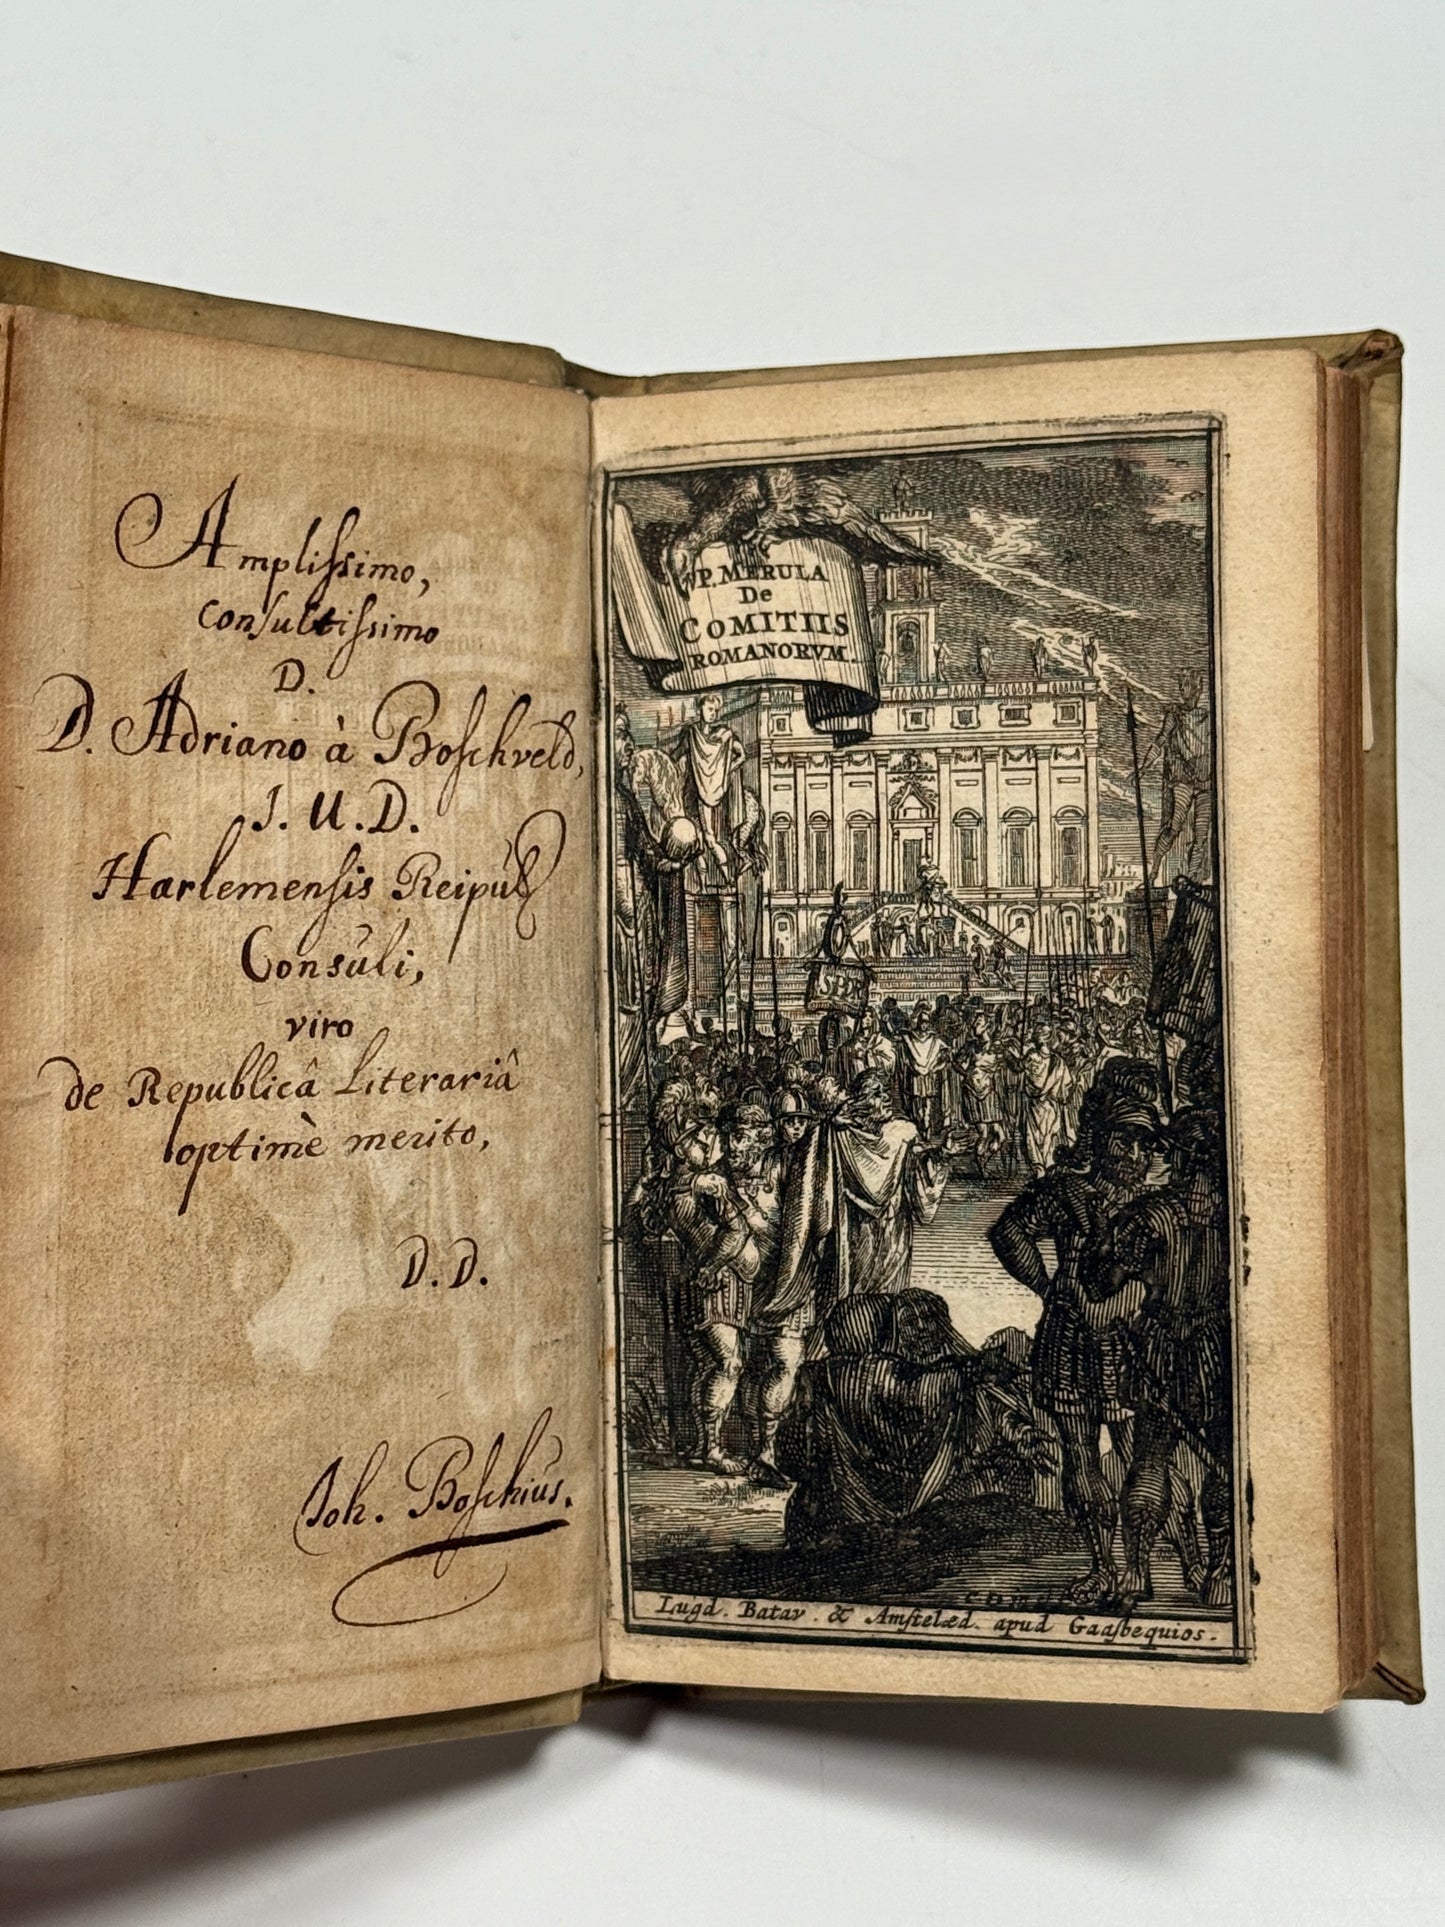 Amplissimo,
Consultissimo
D.
D. Adriano à Boschveld,
J. U. D.
Harlemensis Reipub
Consuli,
viro
de Republicâ Literariâ
optimè merito,
D. D.
Joh. Boschius.
P. MERULA
De
COMITIIS
ROMANORVM.
SPQR
Lugd. Batav. & Amstelæd. apud Gaasbequios.